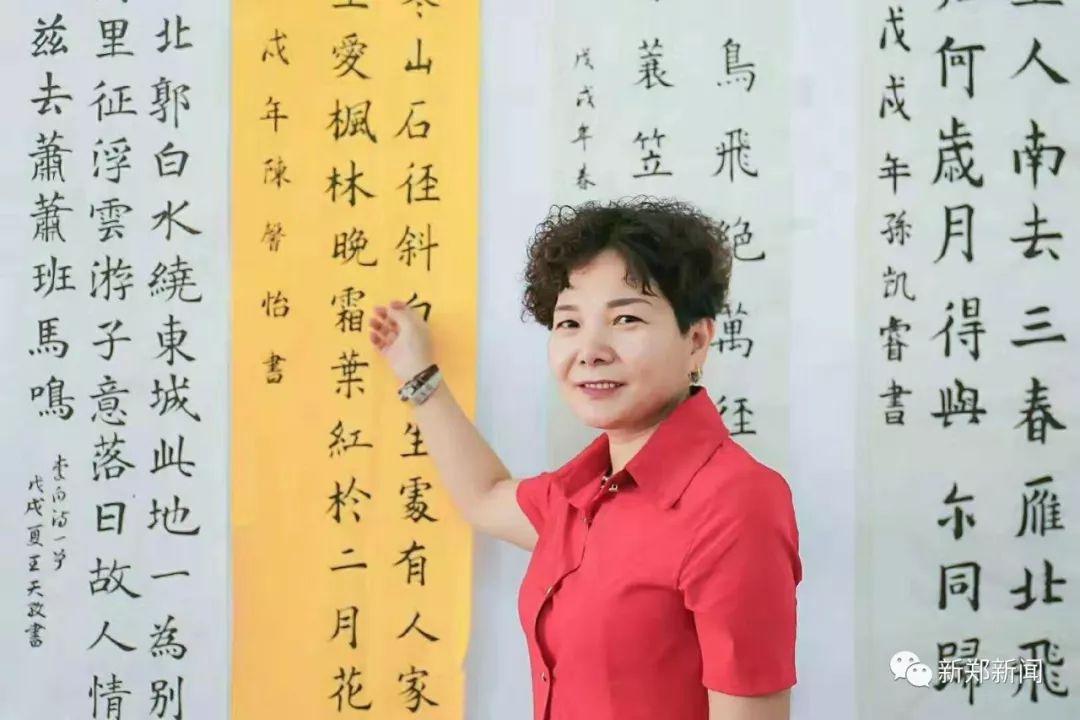 人南去三春雁北飛
何歲月得與尔同歸
戊戌年孫凱睿書
鳥飛絕萬径
蓑笠
戊戌年春
寒山石径斜白生處有人家
愛楓林晚霜葉紅於二月花
戌年陳馨怡書
北郭白水繞東城此地一為別
里征浮雲游子意落日故人情
兹去蕭蕭班馬鳴
李白詩一首
戊戌夏王天敬書
新郑新闻